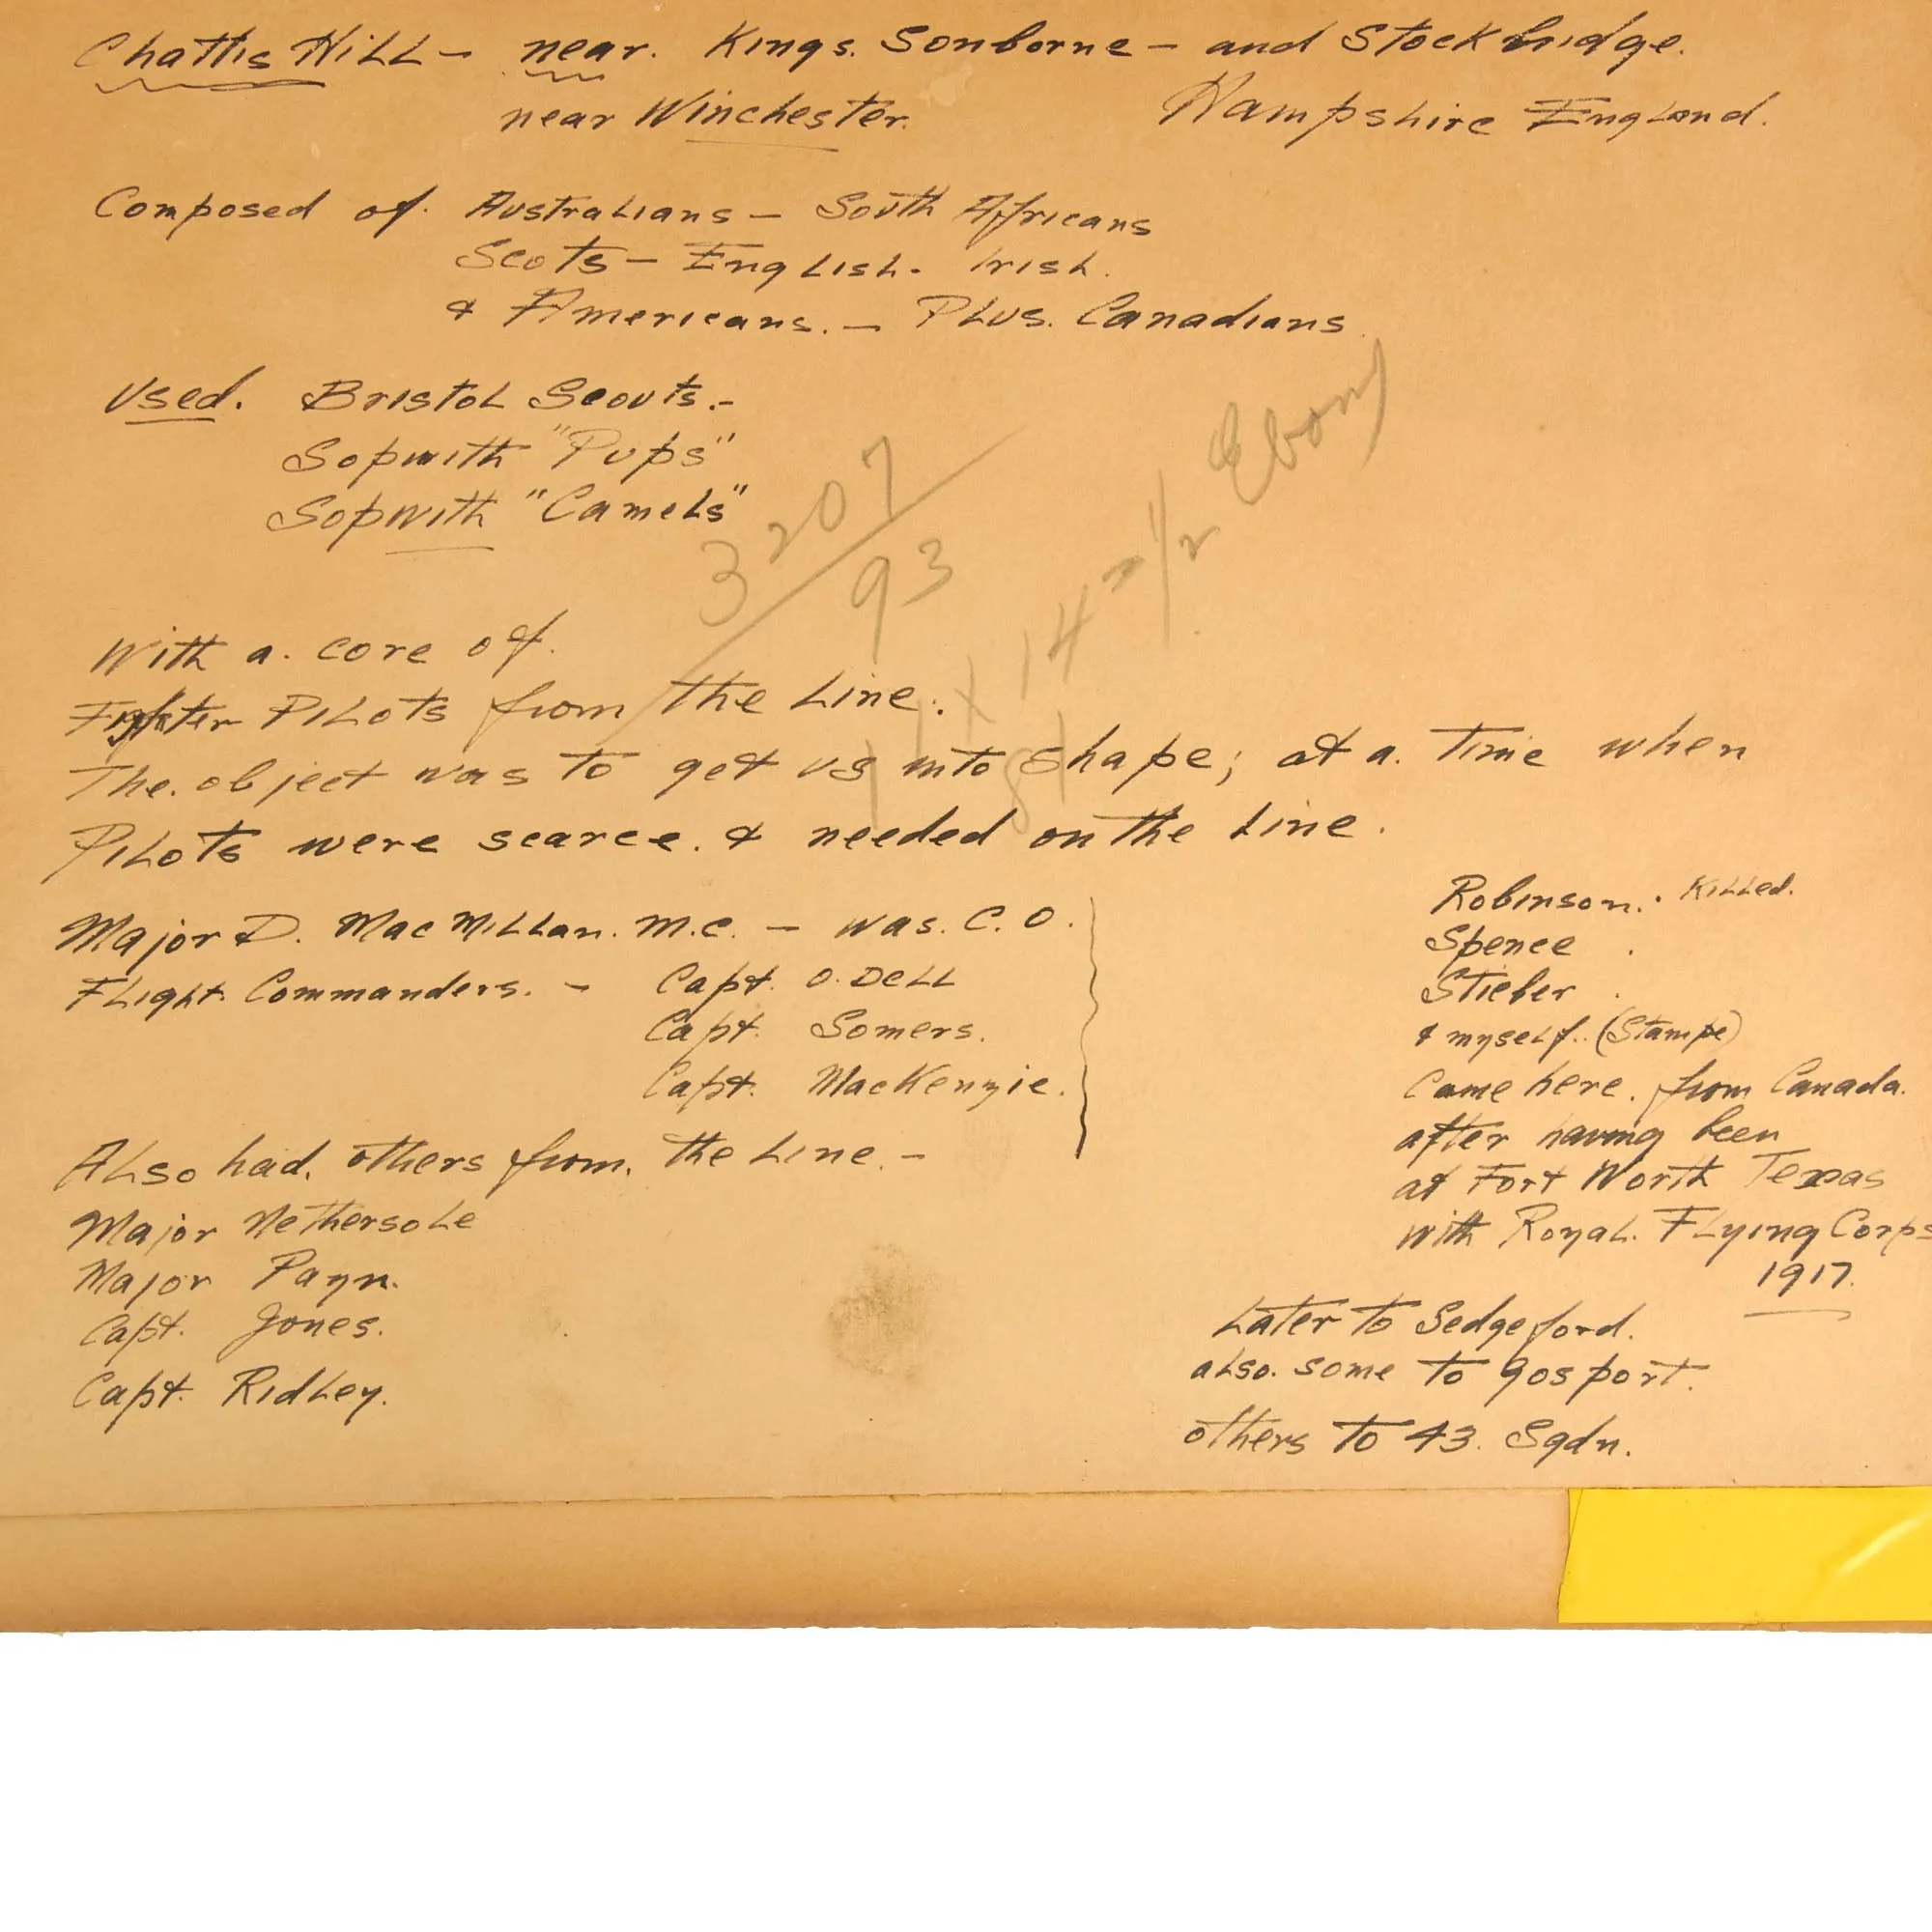 Chattis Hill - near. Kings. Sonborne - and Stockbridge.
near Winchester. Hampshire England.
Composed of. Australians - South Africans
Scots - English. Irish.
& Americans. - Plus. Canadians
Used. Bristol Scouts.-
Sopwith "Pups"
Sopwith "Camels"
3207/93
11 x 14 - 1/2 Ebony
With a. core of.
Fighter Pilots from the Line.
The. object was to get us into shape; at a. time when
Pilots were scarce. & needed on the Line.
Major D. MacMillan. M.C. - was. C.O.
Flight Commanders. - Capt. O.Dell
Capt. Somers.
Capt. MacKenzie.
Also had. others from. the Line. -
Major Nethersole
Major Payn.
Capt. Jones.
Capt. Ridley.
Robinson. . Killed.
Spence .
Stieber .
& myself. . (Stampe)
Came here. from Canada.
after having been
at Fort Worth Texas
with Royal. Flying Corps
1917.
Later to Sedgeford.
also. some to gosport.
others to 43. Sqdn.